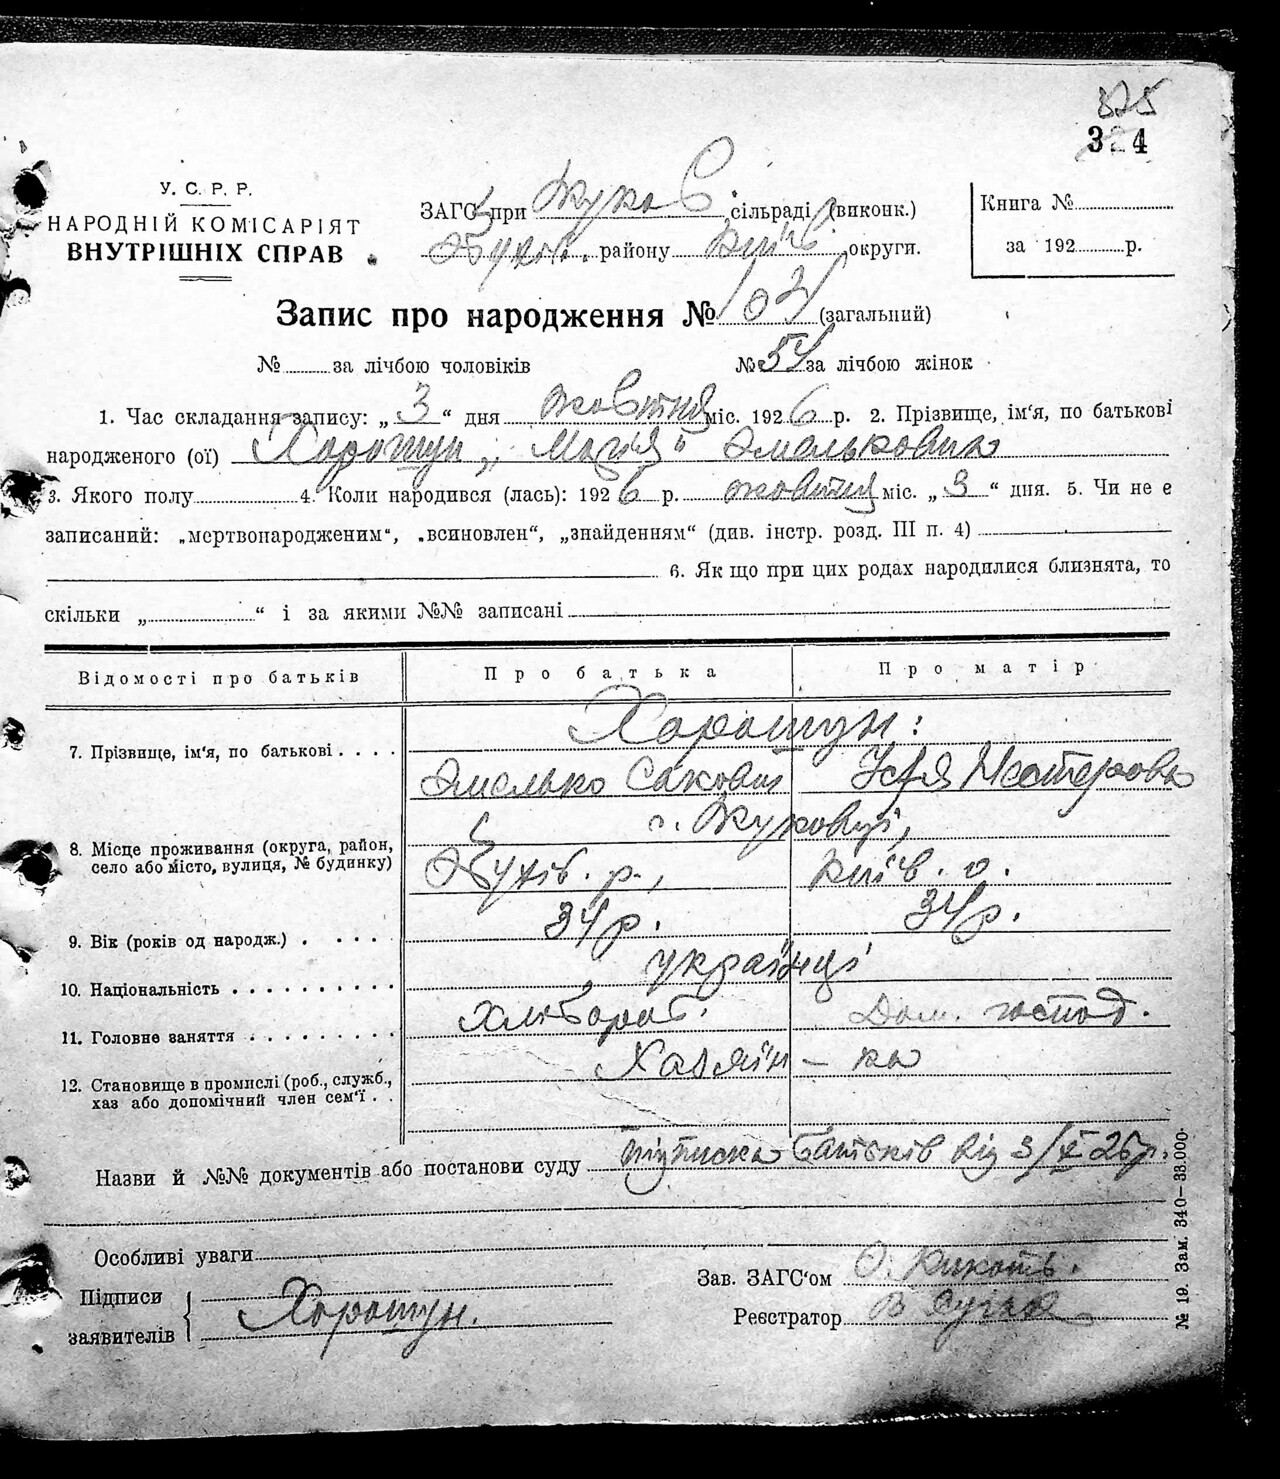 325
324
У. С. Р. Р.
НАРОДНІЙ КОМІСАРІЯТ
ВНУТРІШНІХ СПРАВ
ЗАГС при Жуков. сільраді (виконк.)
Обухів. району Київ. округи.
Книга №
за 192 р.
Запис про народження № 104 (загальний)
№ за лічбою чоловіків № 54 за лічбою жінок
1. Час складання запису: „ 3 “ дня жовтня міс. 192 6 р. 2. Прізвище, ім'я, по батькові
народженого (ої) Хорошун „ Марія “ Омельковна
3. Якого полу 4. Коли народився (лась): 192 6 р. жовтня міс. „ 3 “ дня. 5. Чи не є
записаний: „мертвонародженим“, „всиновлен“, „знайденням“ (див. інстр. розд. III п. 4)
6. Як що при цих родах народилися близнята, то
скільки „ “ і за якими №№ записані
Відомості про батьків Про батька Про матір
Хорошун:
7. Прізвище, ім'я, по батькові . . . . Омелько Сакович Устя Несterовна
с. Жуковці,
8. Місце проживання (округа, район,
село або місто, вулиця, № будинку) Обухів. р., Київ. о.
9. Вік (років од народж.) . . . . . 34 р. 34 р.
10. Національність . . . . . . . . . . українці
11. Головне заняття . . . . . . . . . Хлібороб. Дом. господ.
12. Становище в промислі (роб., служб.,
хаз або допомічний член сем'ї . . Хазяїн – ка
Назви й №№ документів або постанови суду підписка батьків від 3/X 26 р.
Особливі уваги
Зав. ЗАГС'ом О.
Підписи
заявителів Хорошун.
Реєстратор В
№ 19. Зам. 340—33.000.